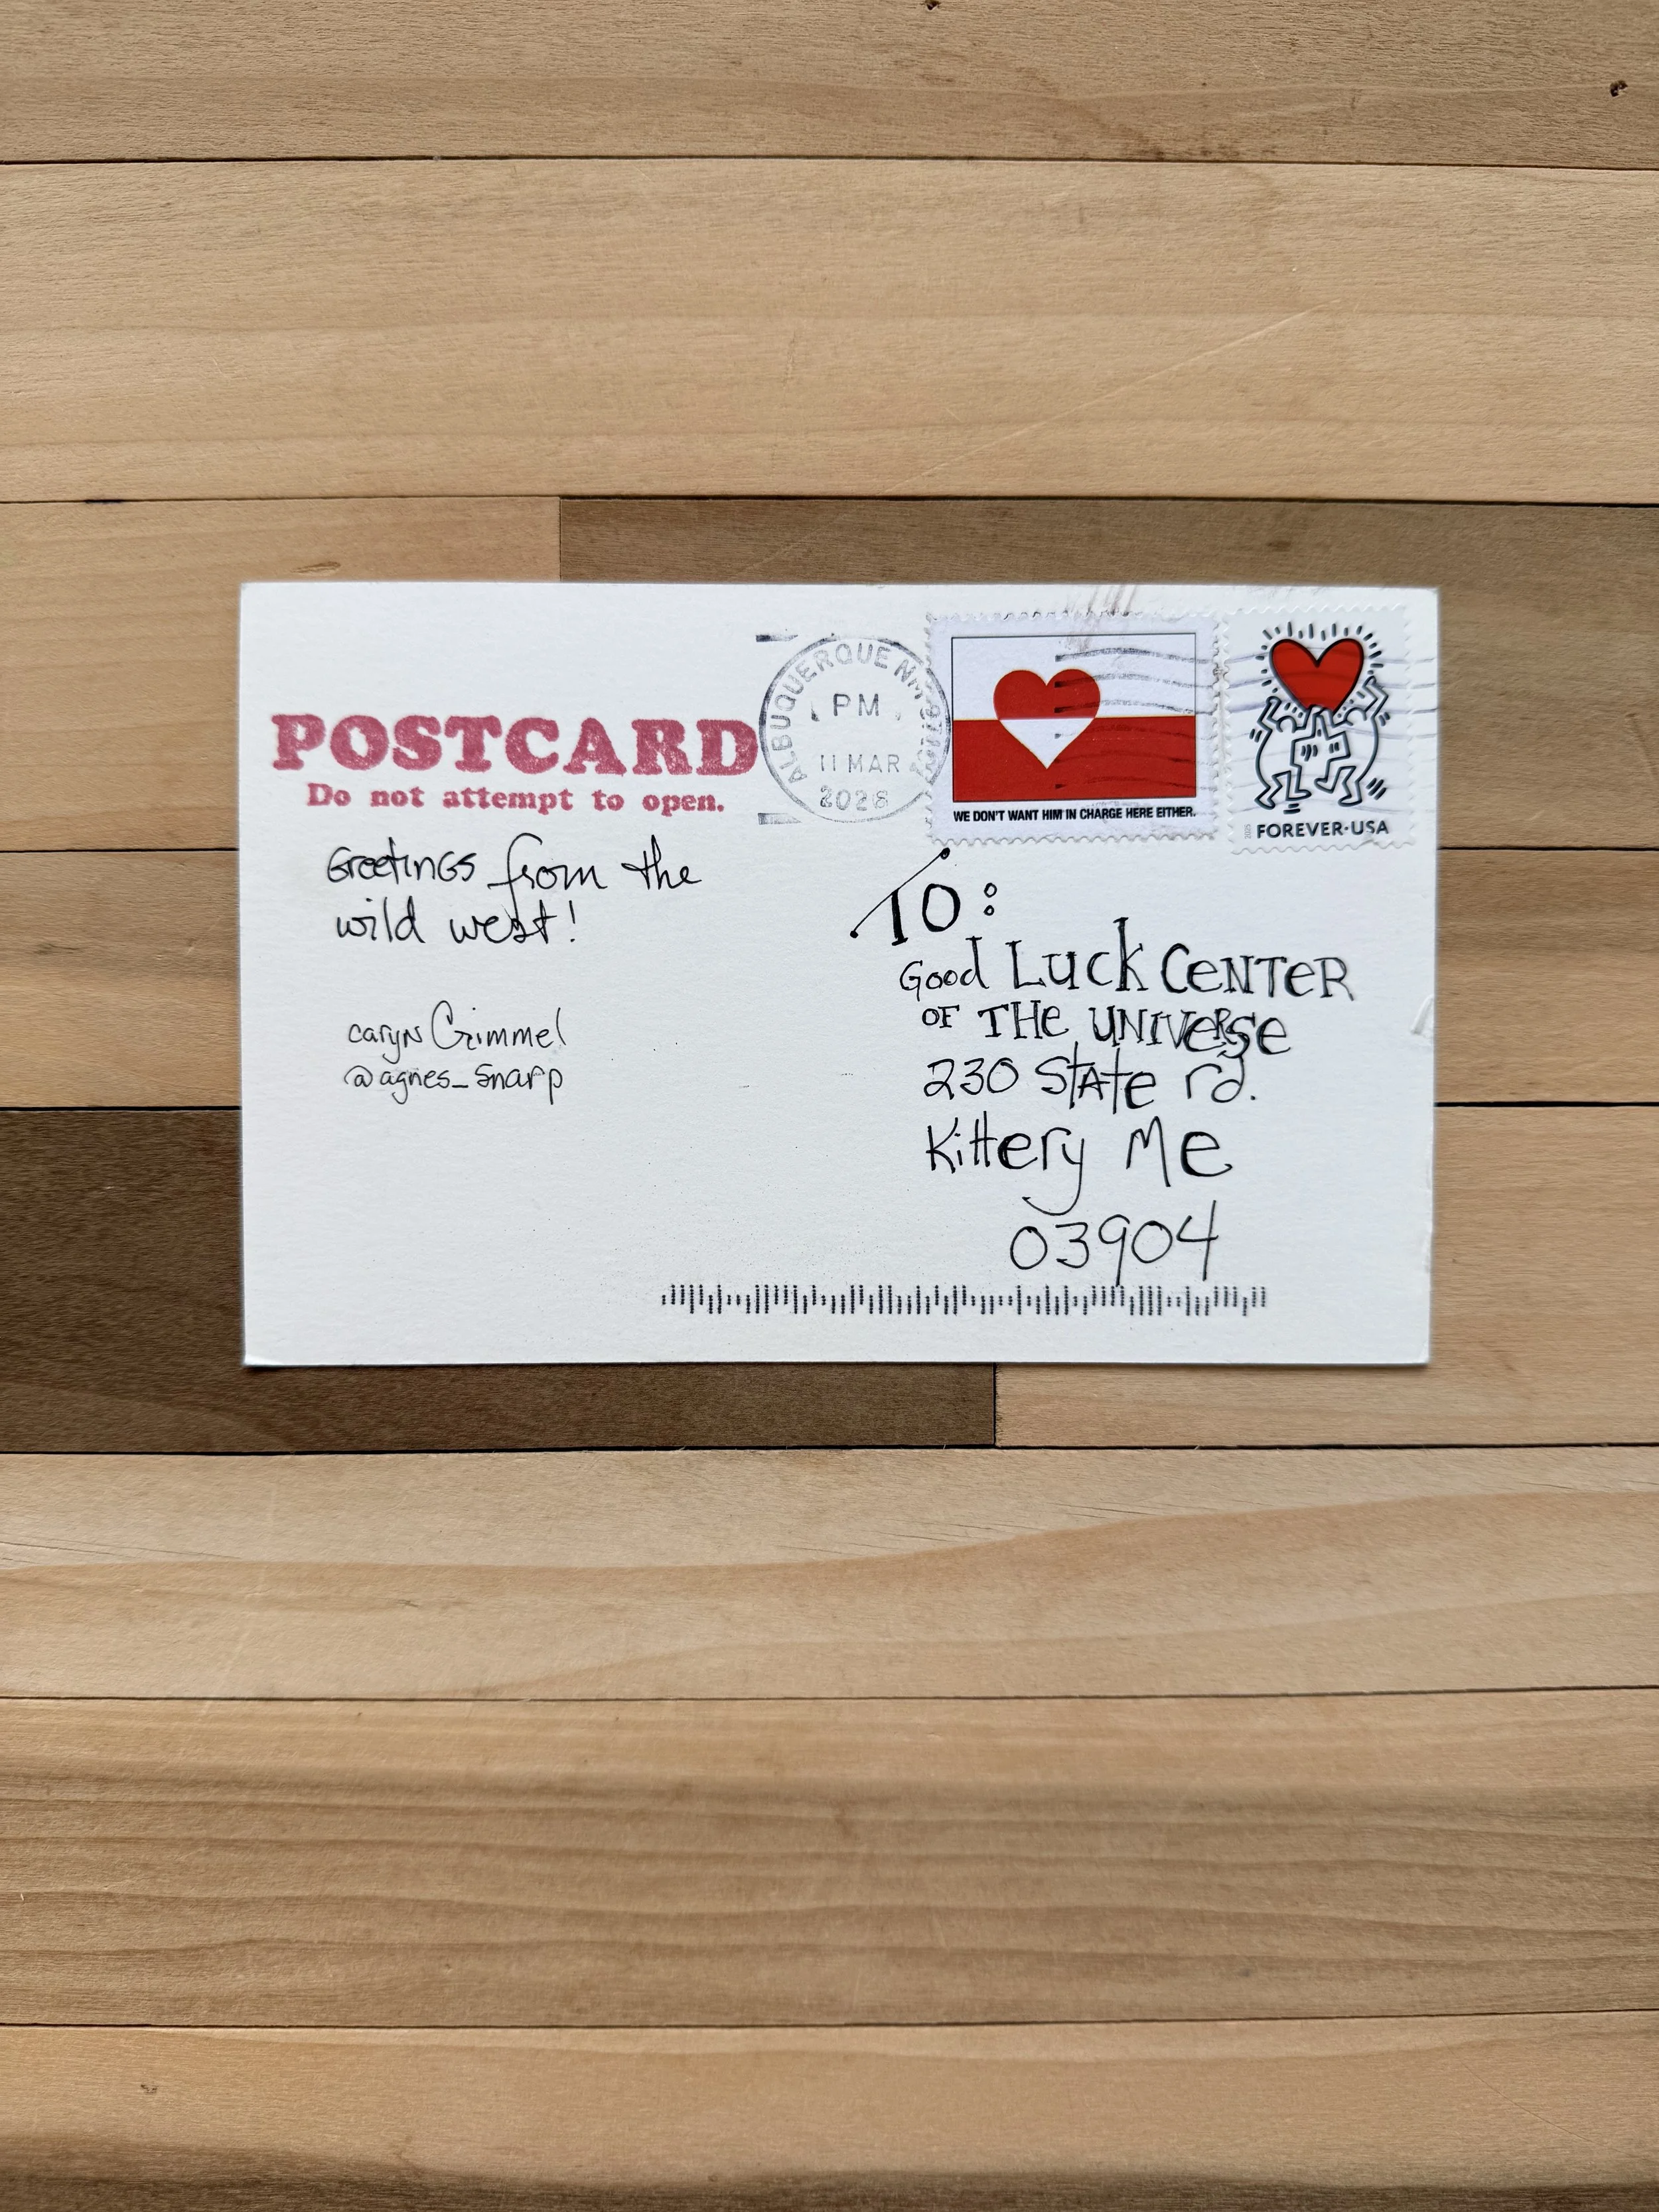 POSTCARD
Do not attempt to open.
ALBUQUERQUE NM
PM
11 MAR
2026
WE DON'T WANT HIM IN CHARGE HERE EITHER.
FOREVER·USA
Greetings from the
wild west!
caryn Grimmel
@agnes_snarp
TO:
Good Luck CeNTeR
OF THe UNIVeRSe
230 STATe rd.
Kittery Me
03904